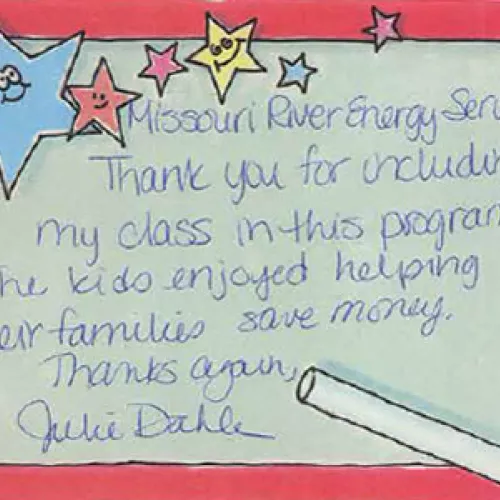 Missouri River Energy Serv
Thank you for includin
my class in this program
he kids enjoyed helping
eir families save money.
Thanks again,
Julie Dahle